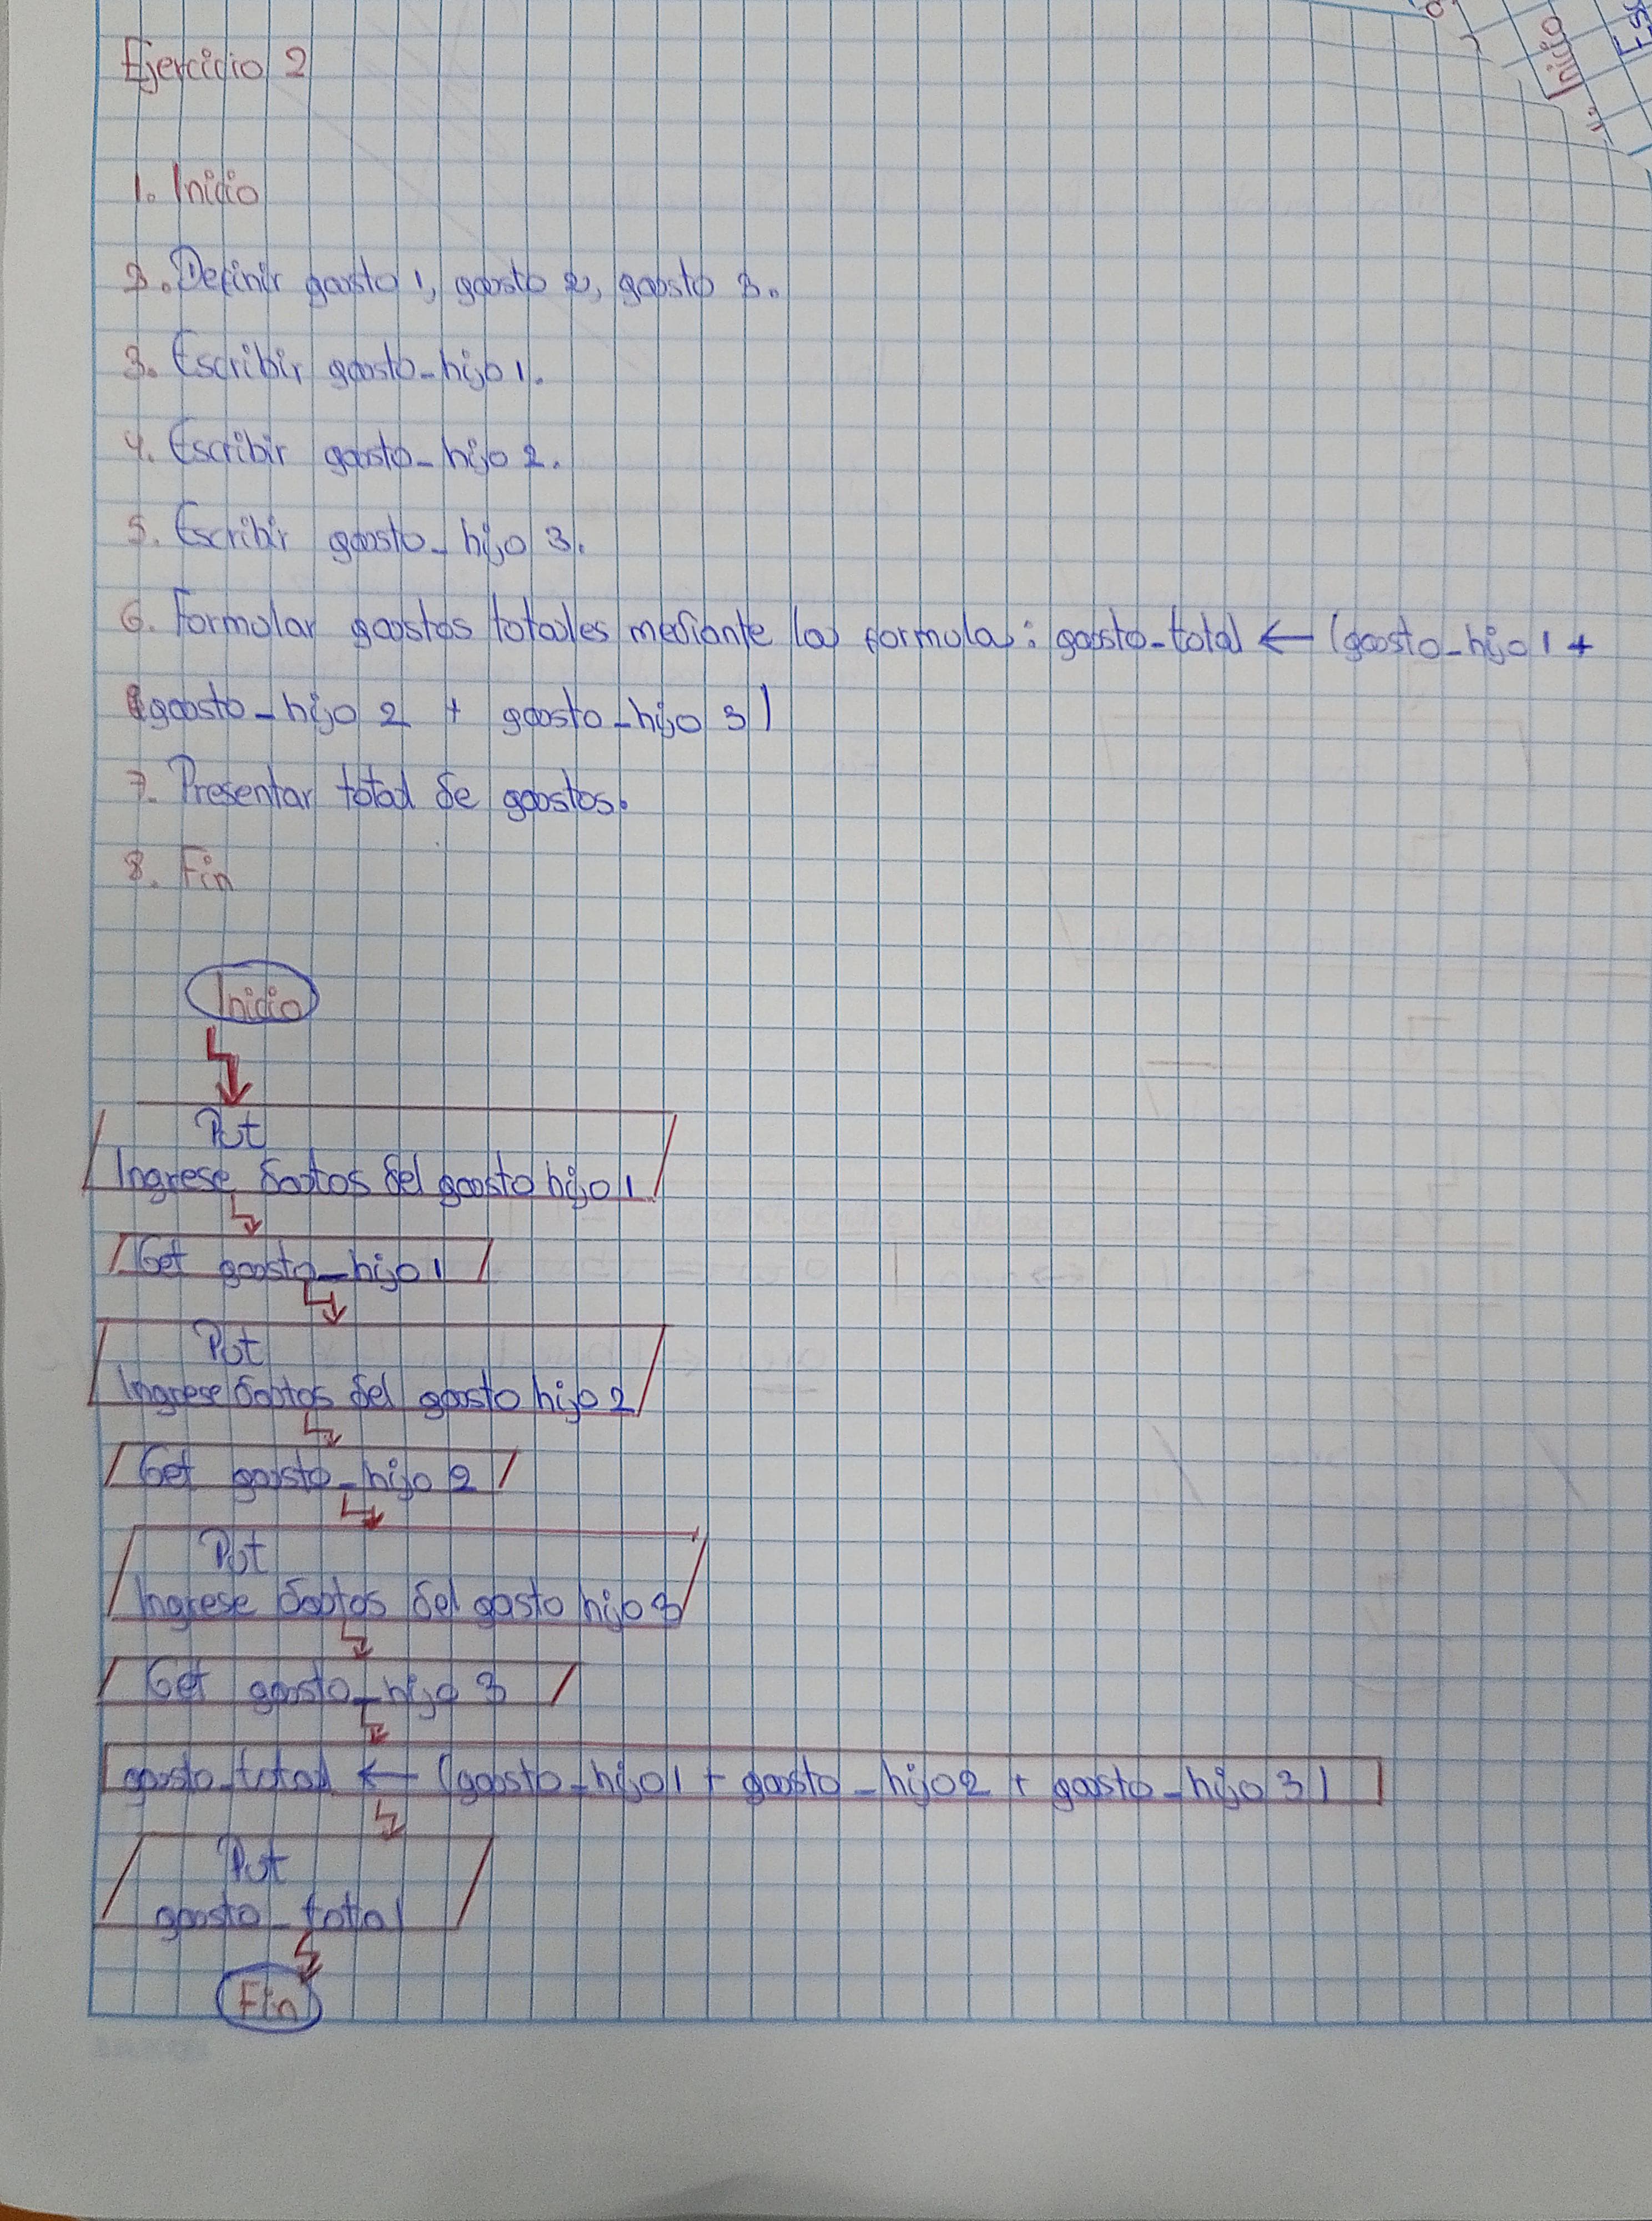 Ejercicio 2
1. Inicio
2. Definir gasto 1, gasto 2, gasto 3.
3. Escribir gasto_hijo 1.
4. Escribir gasto_hijo 2.
5. Escribir gasto_hijo 3.
6. Formular gastos totales mediante la formula: gasto_total ← (gasto_hijo 1 +
gasto_hijo 2 + gasto_hijo 3)
7. Presentar total de gastos.
8. Fin
Inicio
Put
Ingrese datos del gasto hijo 1
Get gasto_hijo 1
Put
Ingrese datos del gasto hijo 2
Get gasto_hijo 2
Put
Ingrese datos del gasto hijo 3
Get gasto_hijo 3
gasto_total ← (gasto_hijo 1 + gasto_hijo 2 + gasto_hijo 3)
Put
gasto_total
Fin
Inicio